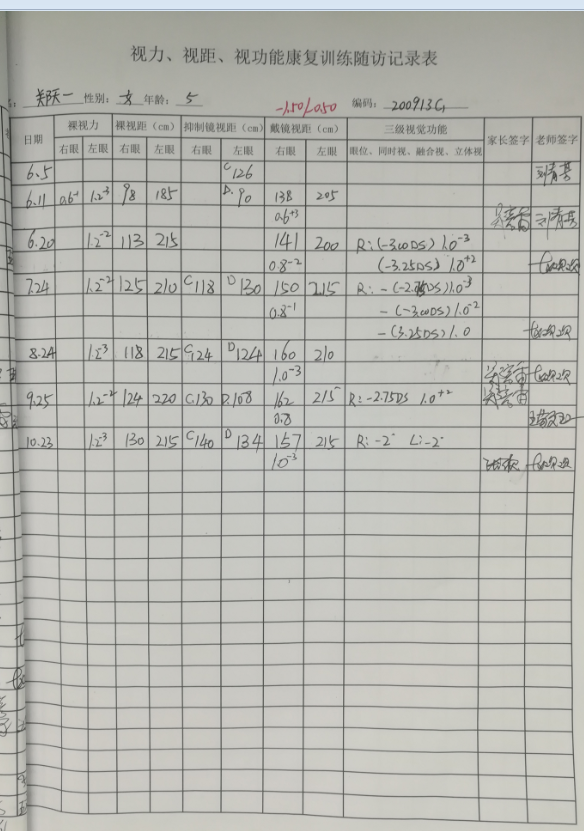 视力、视距、视功能康复训练随访记录表
性别: 女 年龄: 5 -1.50/-0.50 编码: 200913G
日期 裸视力 裸视距(cm) 抑制镜视距(cm) 戴镜视距(cm) 三级视觉功能 家长签字 老师签字
右眼 左眼 右眼 左眼 右眼 左眼 右眼 左眼 眼位、同时视、融合视、立体视
6.5 C126
6.11 0.6⁺ 1.2⁻³ 98 185 D.90 138 205
0.6⁺³
6.20 1.2⁻² 113 215 141 200 R:(-3.00DS) 1.0⁻³
0.8⁻² (-3.25DS) 1.0⁺²
7.24 1.2⁻² 125 210 C118 D130 150 215 R: -(-2.75DS) 1.0⁻³
0.8⁻¹ -(-3.00DS) 1.0⁻²
-(3.25DS) 1.0
8.24 1.2⁻³ 118 215 C124 D124 160 210
1.0⁻³
9.25 1.2⁻² 124 220 C.130 D.108 162 215 R:-2.75DS 1.0⁺²
0.8
10.23 1.2⁻³ 130 215 C140 D134 157 215 R:-2⁻ L:-2⁻
1.0⁻³